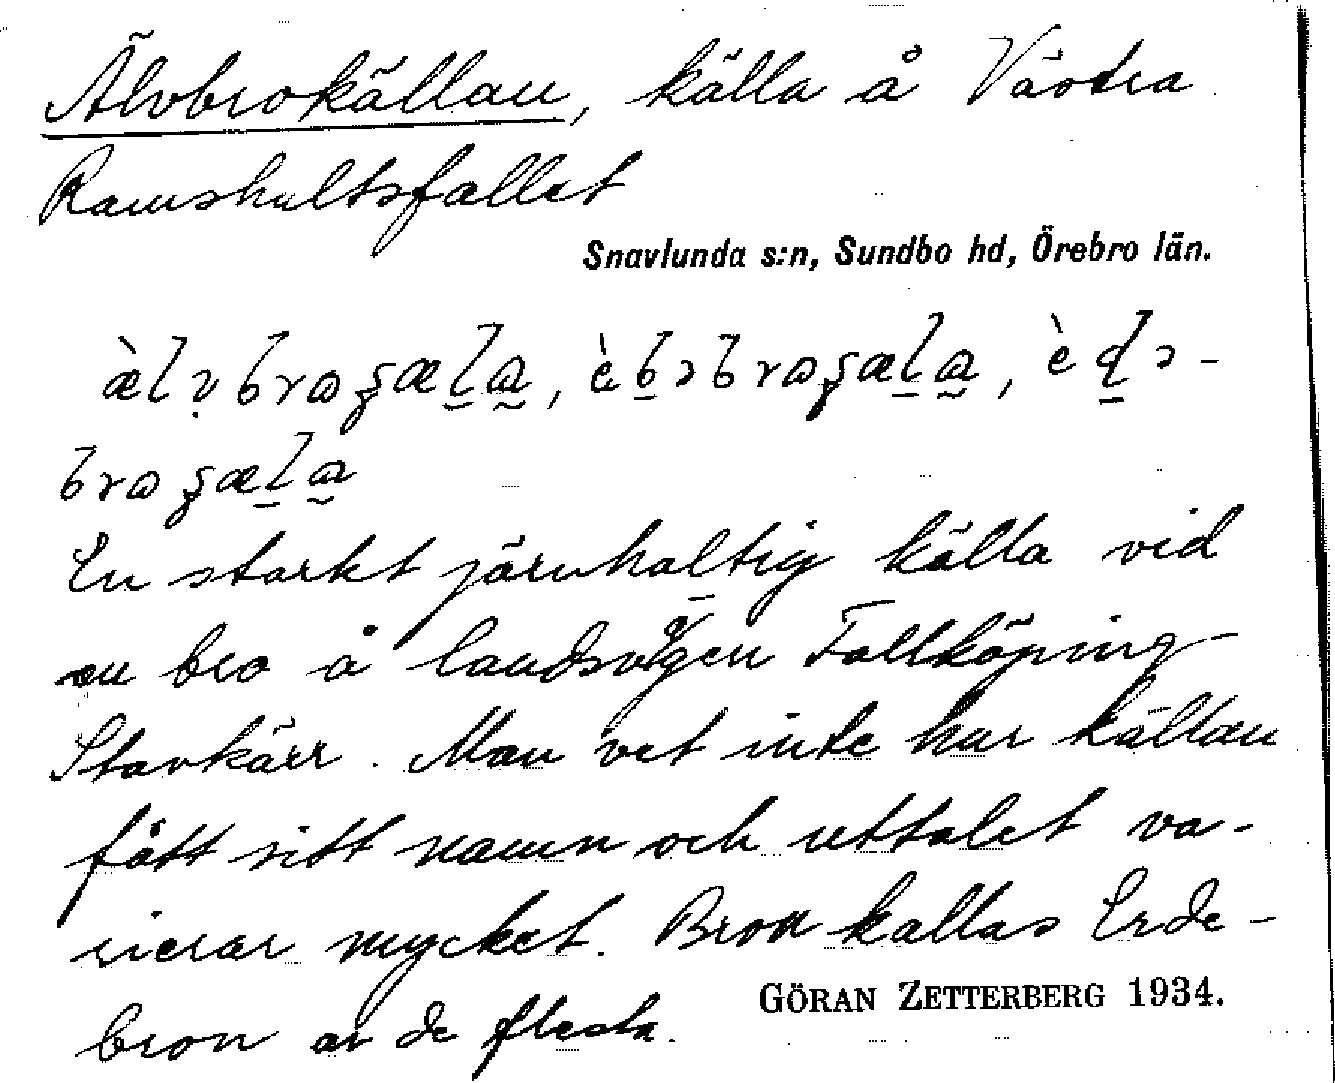 Älvbrokällan, källa å Västra
Ramshultsfallet
Snavlunda s:n, Sundbo hd, Örebro län.
En starkt järnhaltig källa vid
en bro å landsvägen Falkköping-
Stavkärr. Man vet inte hur källan
fått sitt namn och uttalet va-
rierar mycket. Bron kallas Erde-
bron av de flesta.
GÖRAN ZETTERBERG 1934.